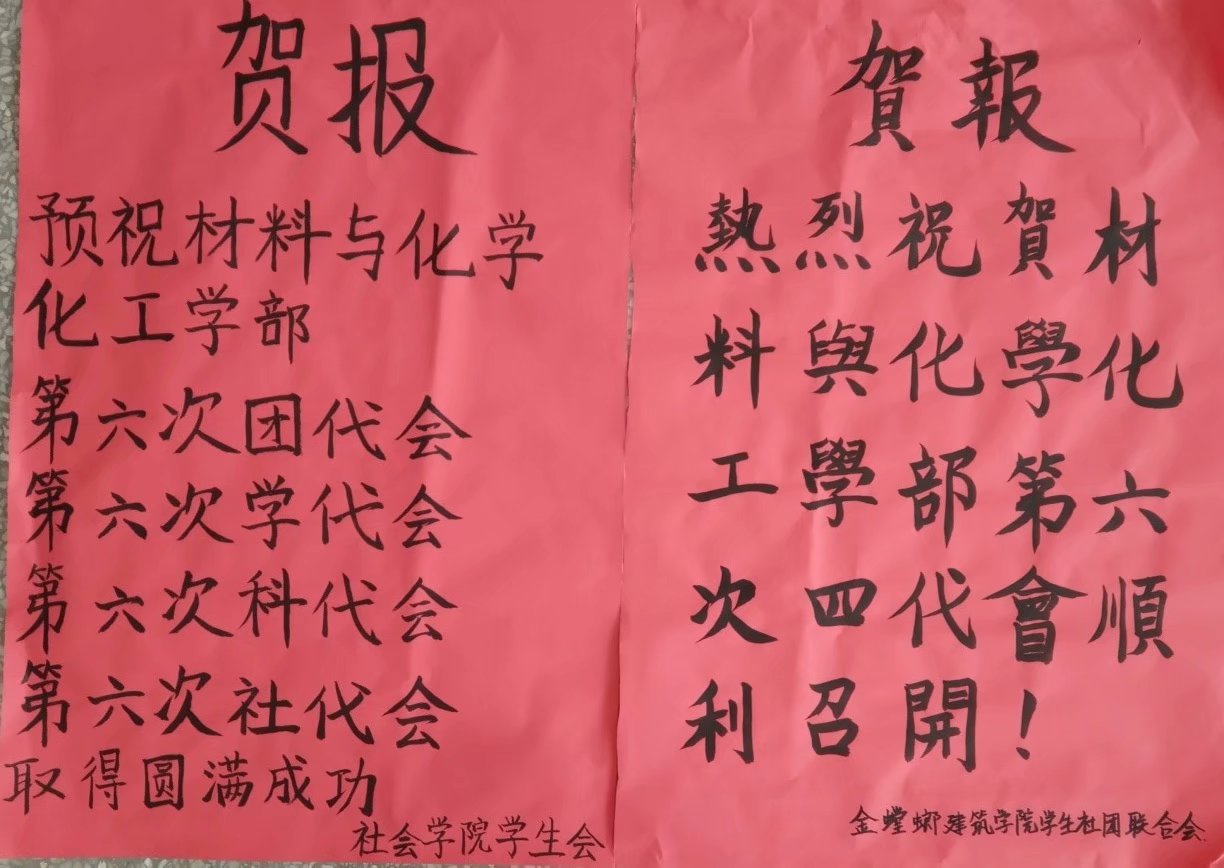 贺报
预祝材料与化学
化工学部
第六次团代会
第六次学代会
第六次科代会
第六次社代会
取得圆满成功
社会学院学生会
賀報
熱烈祝賀材
料與化學化
工學部第六
次四代會順
利召開！
金螳螂建筑学院学生社团联合会